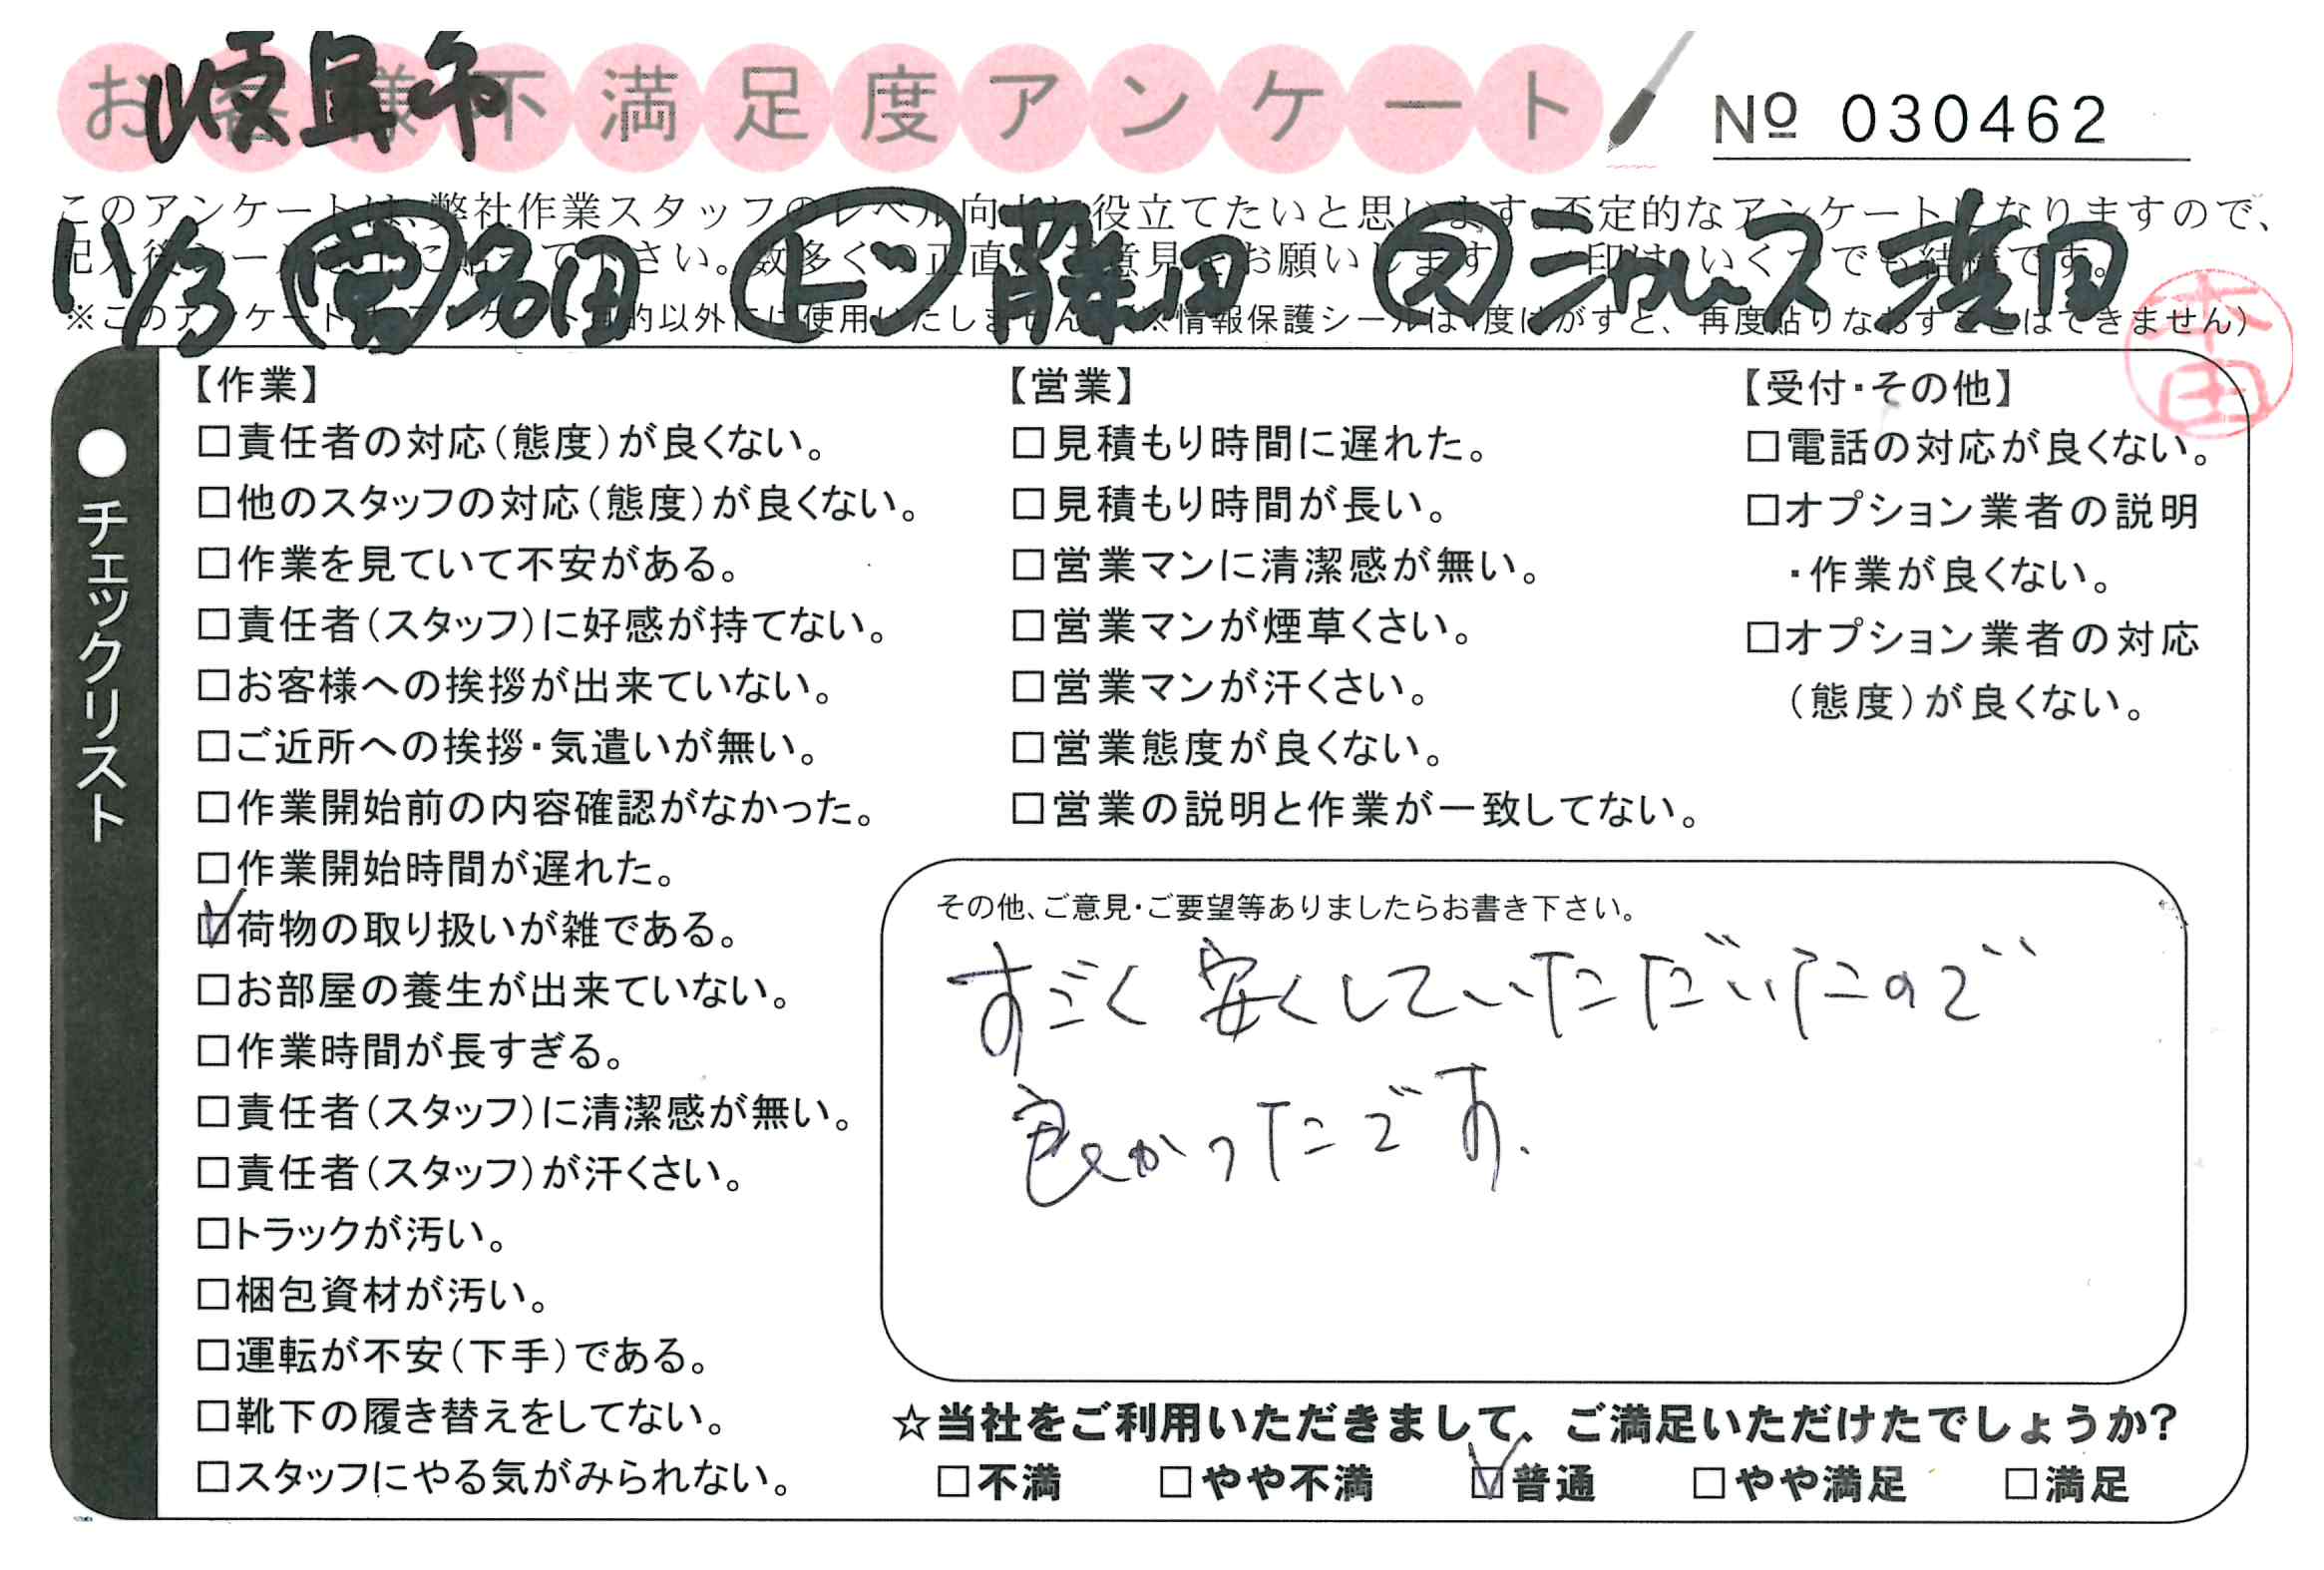 お客様不満足度アンケート
岐阜市
№ 030462
このアンケートは、弊社作業スタッフのレベル向上に役立てたいと思います。否定的なアンケートになりますので、
11/3 営 名田 ト 藤田 ス ジャルース 濱田
本田
● チェックリスト
【作業】
□責任者の対応(態度)が良くない。
□他のスタッフの対応(態度)が良くない。
□作業を見ていて不安がある。
□責任者(スタッフ)に好感が持てない。
□お客様への挨拶が出来ていない。
□ご近所への挨拶・気遣いが無い。
□作業開始前の内容確認がなかった。
□作業開始時間が遅れた。
☑荷物の取り扱いが雑である。
□お部屋の養生が出来ていない。
□作業時間が長すぎる。
□責任者(スタッフ)に清潔感が無い。
□責任者(スタッフ)が汗くさい。
□トラックが汚い。
□梱包資材が汚い。
□運転が不安(下手)である。
□靴下の履き替えをしてない。
□スタッフにやる気がみられない。
【営業】
□見積もり時間に遅れた。
□見積もり時間が長い。
□営業マンに清潔感が無い。
□営業マンが煙草くさい。
□営業マンが汗くさい。
□営業態度が良くない。
□営業の説明と作業が一致してない。
【受付・その他】
□電話の対応が良くない。
□オプション業者の説明
・作業が良くない。
□オプション業者の対応
(態度)が良くない。
その他、ご意見・ご要望等ありましたらお書き下さい。
すごく安くしていただいたので
良かったです.
☆当社をご利用いただきまして、ご満足いただけたでしょうか?
□不満 □やや不満 ☑普通 □やや満足 □満足